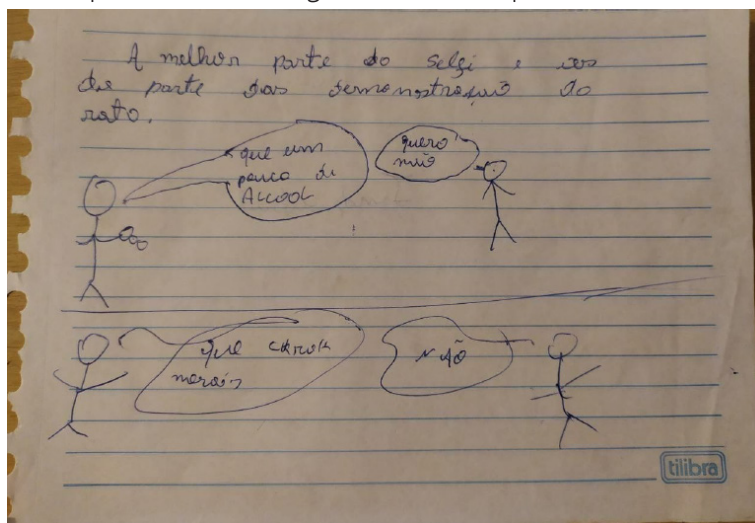 A melhor parte do selfi e
de parte das demonstrasão do
rato.
que um
pouco de
ALCOOL
quero
não
que
NÃO
tilibra